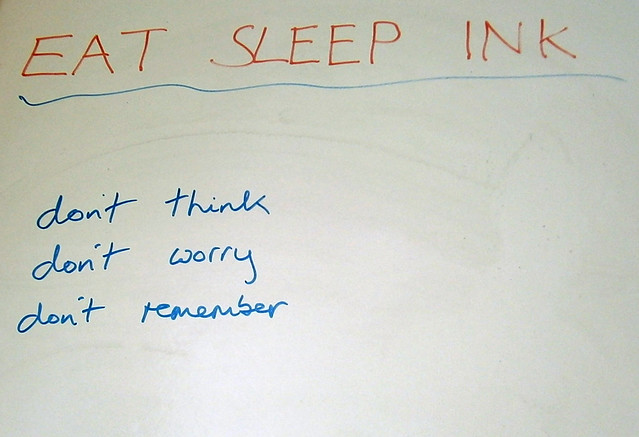 EAT SLEEP INK
don't think
don't worry
don't remember